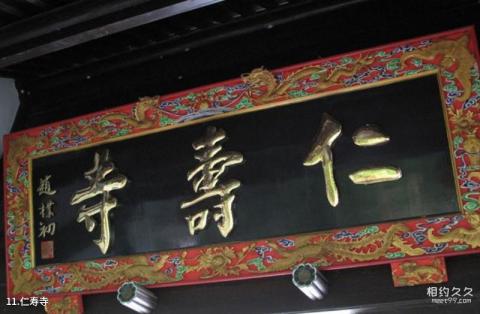 仁壽寺
趙樸初
11.仁寿寺
相约久久
meet99.com